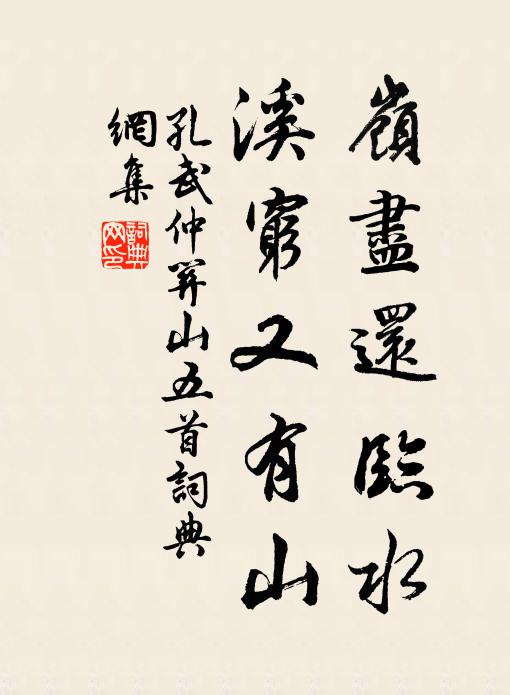 嶺盡還臨水
溪窮又有山
孔武仲山五首詞典
網集
詞典
网印